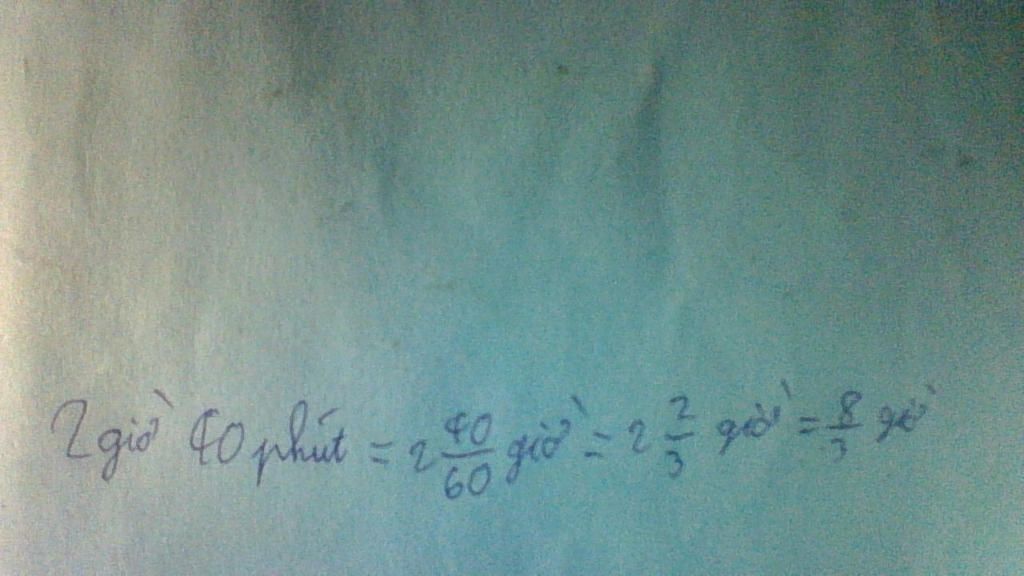 2 giờ 40 phút = 2 40/60 giờ = 2 2/3 giờ = 8/3 giờ